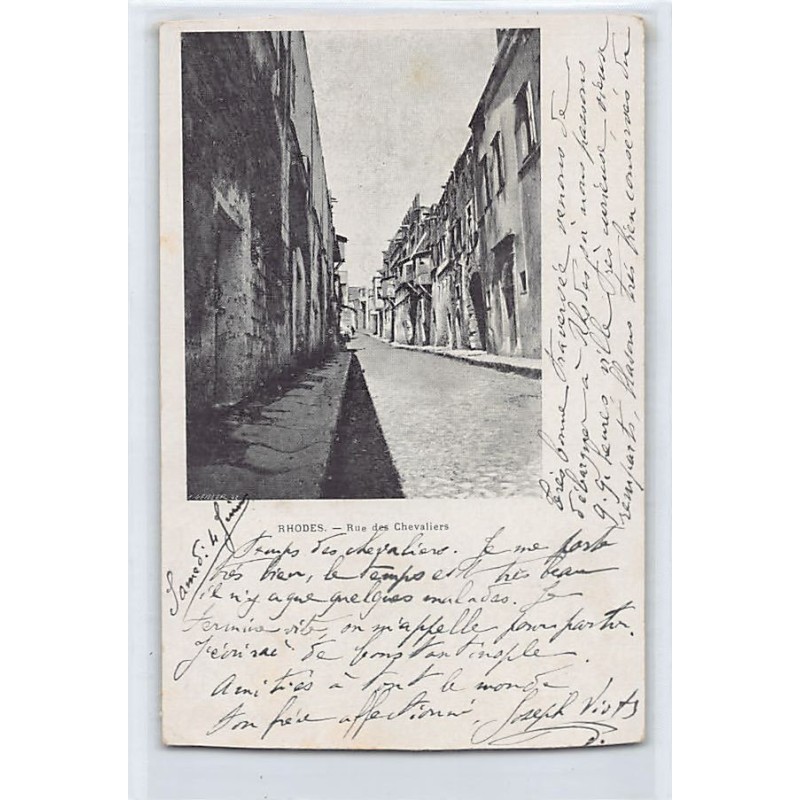 RHODES. — Rue des Chevaliers
Samedi 4 Juin
Très bonne traversée venons de
débarquer à Rhodes où nous passons
quelques heures ville très curieuse vieux
remparts, blasons très bien conservés du
temps des chevaliers. Je me porte
très bien, le temps est très beau
il n'y a que quelques malades. Je
termine vite, on m'appelle pour partir.
J'écrirai de Constantinople.
Amitiés à tout le monde
ton frère affectionné, Joseph